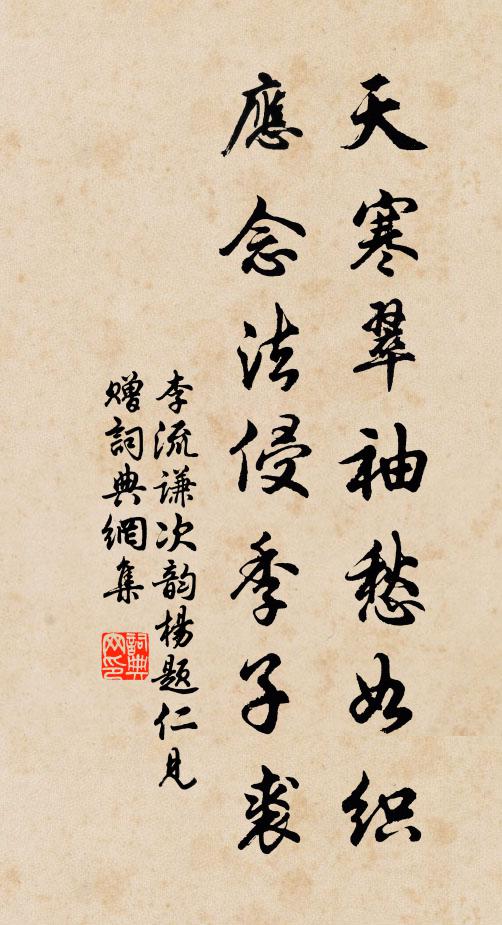 天寒翠袖愁如织
應念法侵季子裘
李流謙次韵楊题仁見
赠詞典網集
詞典网印